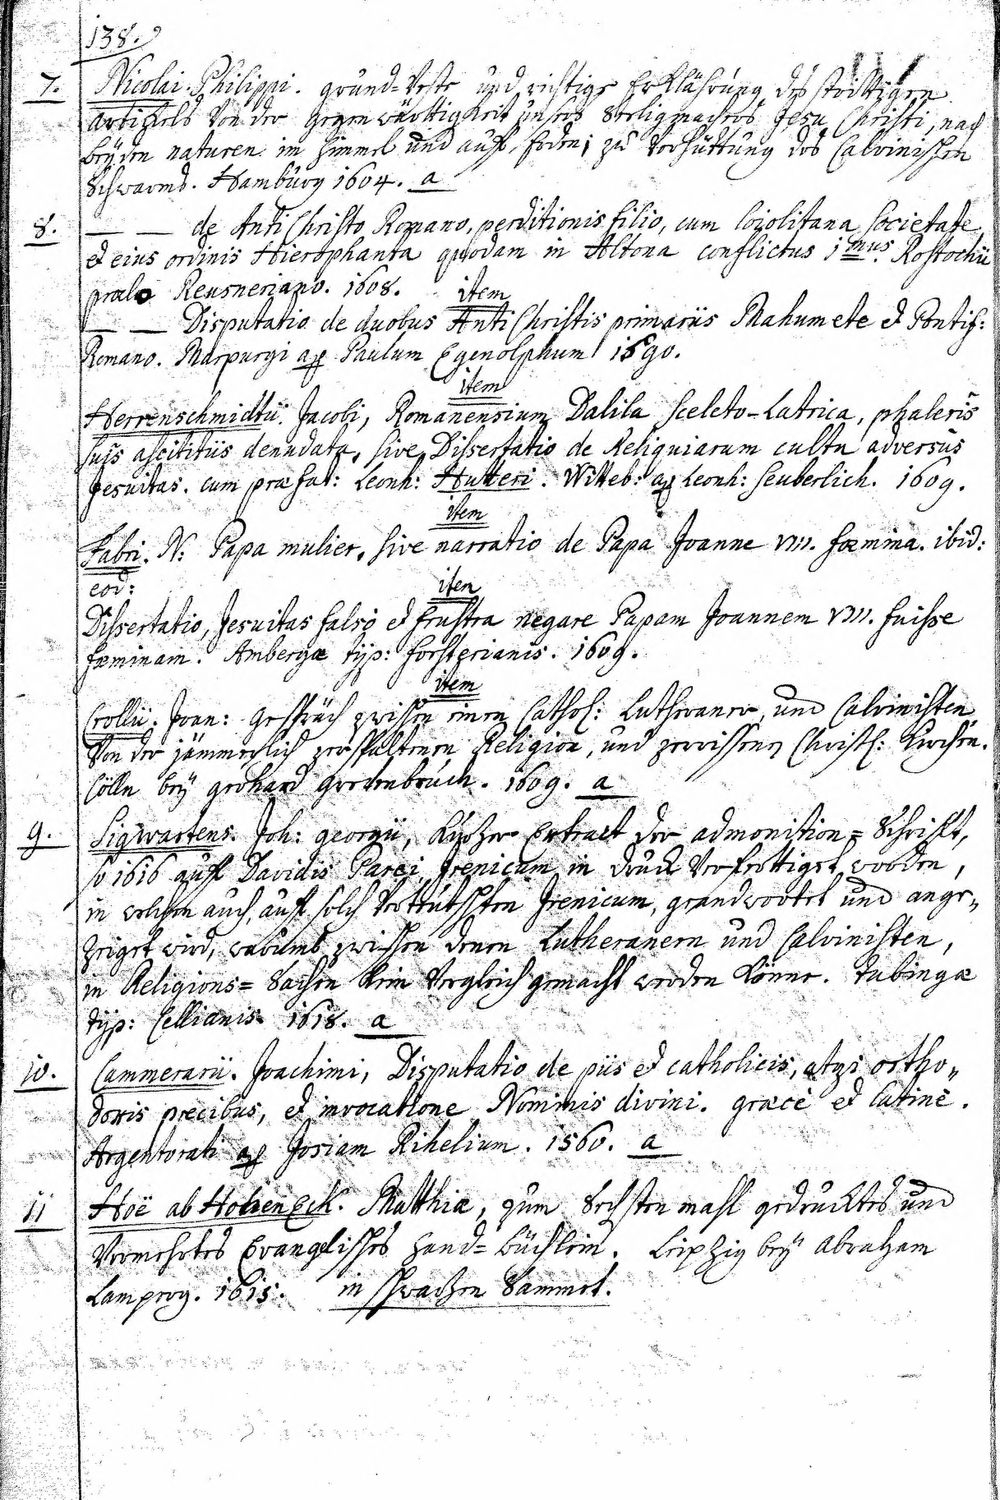 138.
7. Nicolai. Philippi. grund=Veste und richtige Erklährung des streittigen
Articels Von der gegenwärttigkeit unsers Seeligmachers Jesu Christi, nach
beyden naturen im himmel und auff Erden; zu Verhüttung des Calvinischen
Schwarms. Hamburg 1604. a
8. — — de AntiChristo Romano, perditionis filio, cum loiolitana societate,
et eius ordinis Hierophanta quodam in Altona conflictus 1mus. Rostochii
prælo Reusneriano. 1608. item
— — Disputatio de duobus AntiChristis primariis Mahumete et Pontif:
Romano. Marpurgi ap Paulum Egenolphum 1590.
item
Herrenschmidtii. Jacobi, Romanensium Dalila sceleto-Latrica, phaleris
suis ascititiis denudata, sive Dissertatio de Reliquiarum cultu adversus
Jesuitas. cum præfat: Leonh: Hutteri. Witteb: ap Leonh: Seuberlich. 1609.
item
Fabri. N: Papa mulier, sive narratio de Papa Joanne VIII. fœmina. ibid:
eod: item
Dissertatio, Jesuitas falsò et frustra negare Papam Joannem VIII. fuisse
fœminam. Ambergæ typ: forsterianis. 1609.
item
Crollii. Joan: Gespräch zwischen einem Cathol: Lutheraner, und Calvinisten
Von der jämmerlich zerspaltenen Religion, und zerrissenen Christl: Kirchen.
Cölln bey gerhard Grevenbruch. 1609. a
9. Sigwartens. Joh: georgii, Kurtzer Extract der admonition=Schrifft,
so 1616 auff Davidis Parei Irenicum in druck Verferttiget worden,
in welchem auch, auff solch Vertteutschten Irenicum, geandwortet und ange„
zeiget wird, warumb zwischen denen Lutheranern und Calvinisten,
in Religions=Sachen kein Vergleich gemacht werden könne. Tubingæ
typ: Cellianis 1618. a
10. Cammerarii. Joachimi, Disputatio de piis et catholicis, atqs ortho„
doxis precibus, et invocatione Nominis divini. græcè et latinè.
Argentorati ap Josiam Rihelium. 1560. a
11 Hoë ab Hohenëck. Matthiæ, zum Sechsten mahl gedrucktes und
Vermehrtes Evangelisches hand=büchlein. Leipzig bey Abraham
Lamperg. 1615. in schwartzen Sammet.